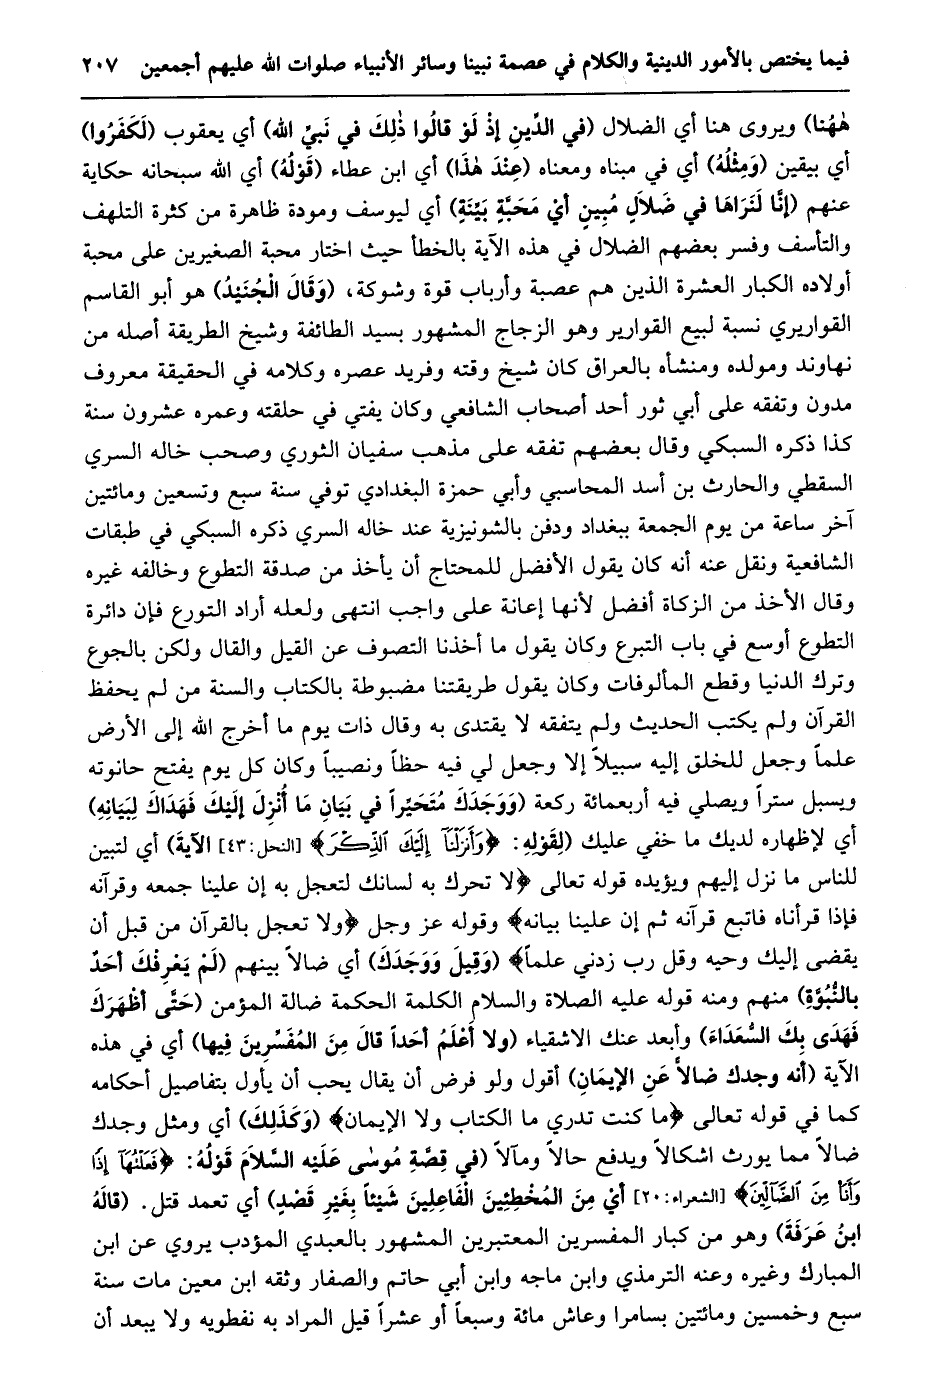 فيما يختص بالأمور الدينية والكلام في عصمة نبينا وسائر الأنبياء صلوات الله عليهم أجمعين ٢٠٧
هٰهُنا) ويروى هنا أي الضلال (في الدِّينِ إذْ لَوْ قالُوا ذٰلِكَ في نَبيِّ الله) أي يعقوب (لَكَفَرُوا)
أي بيقين (وَمِثْلُهُ) أي في مبناه ومعناه (عِنْدَ هٰذَا) أي ابن عطاء (قَوْلُهُ) أي الله سبحانه حكاية
عنهم (إنَّا لَنَرَاهَا في ضَلاَلٍ مُبِينٍ أيْ مَحَبَّةٍ بَيِّنَةٍ) أي ليوسف ومودة ظاهرة من كثرة التلهف
والتأسف وفسر بعضهم الضلال في هذه الآية بالخطأ حيث اختار محبة الصغيرين على محبة
أولاده الكبار العشرة الذين هم عصبة وأرباب قوة وشوكة، (وَقَالَ الْجُنَيْدُ) هو أبو القاسم
القواريري نسبة لبيع القوارير وهو الزجاج المشهور بسيد الطائفة وشيخ الطريقة أصله من
نهاوند ومولده ومنشأه بالعراق كان شيخ وقته وفريد عصره وكلامه في الحقيقة معروف
مدون وتفقه على أبي ثور أحد أصحاب الشافعي وكان يفتي في حلقته وعمره عشرون سنة
كذا ذكره السبكي وقال بعضهم تفقه على مذهب سفيان الثوري وصحب خاله السري
السقطي والحارث بن أسد المحاسبي وأبي حمزة البغدادي توفي سنة سبع وتسعين ومائتين
آخر ساعة من يوم الجمعة ببغداد ودفن بالشونيزية عند خاله السري ذكره السبكي في طبقات
الشافعية ونقل عنه أنه كان يقول الأفضل للمحتاج أن يأخذ من صدقة التطوع وخالفه غيره
وقال الأخذ من الزكاة أفضل لأنها إعانة على واجب انتهى ولعله أراد التورع فإن دائرة
التطوع أوسع في باب التبرع وكان يقول ما أخذنا التصوف عن القيل والقال ولكن بالجوع
وترك الدنيا وقطع المألوفات وكان يقول طريقتنا مضبوطة بالكتاب والسنة من لم يحفظ
القرآن ولم يكتب الحديث ولم يتفقه لا يقتدى به وقال ذات يوم ما أخرج الله إلى الأرض
علماً وجعل للخلق إليه سبيلاً إلا وجعل لي فيه حظاً ونصيباً وكان كل يوم يفتح حانوته
ويسبل ستراً ويصلي فيه أربعمائة ركعة (وَوَجَدَكَ مُتَحَيِّراً في بَيَانِ مَا أُنْزِلَ إلَيْكَ فَهَدَاكَ لِبَيَانِهِ)
أي لإظهاره لديك ما خفي عليك (لِقَوْلِهِ: ﴿وَأَنزَلْنَآ إِلَيْكَ ٱلذِّكْرَ﴾ [النحل:٤٣] الآيةَ) أي لتبين
للناس ما نزل إليهم ويؤيده قوله تعالى ﴿لا تحرك به لسانك لتعجل به إن علينا جمعه وقرآنه
فإذا قرأناه فاتبع قرآنه ثم إن علينا بيانه﴾ وقوله عز وجل ﴿ولا تعجل بالقرآن من قبل أن
يقضى إليك وحيه وقل رب زدني علماً﴾ (وَقِيلَ وَوَجَدَكَ) أي ضالاً بينهم (لَمْ يَعْرِفْكَ أحَدٌ
بالنُّبُوَّةِ) منهم ومنه قوله عليه الصلاة والسلام الكلمة الحكمة ضالة المؤمن (حَتَّى أظْهَرَكَ
فَهَدَى بِكَ السُّعَدَاءَ) وأبعد عنك الاشقياء (ولا أعْلَمُ أحَداً قالَ مِنَ المُفَسِّرِينَ فِيها) أي في هذه
الآية (أنه وجدك ضالاً عَنِ الإيمَانِ) أقول ولو فرض أن يقال يحب أن يأول بتفاصيل أحكامه
كما في قوله تعالى ﴿ما كنت تدري ما الكتاب ولا الإيمان﴾ (وَكَذَلِكَ) أي ومثل وجدك
ضالاً مما يورث اشكالاً ويدفع حالاً ومآلاً (في قِصَّةِ مُوسَى عَلَيْه السَّلاَمَ قَوْلُهُ: ﴿فَعَلْتُهَآ إِذًا
وَأَنَا۠ مِنَ ٱلضَّآلِّينَ﴾ [الشعراء:٢٠] أيْ مِنَ المُخْطِئِينَ الْفَاعِلِينَ شَيْئاً بِغَيْرِ قَصْدٍ) أي تعمد قتل. (قالَهُ
ابنُ عَرَفَةَ) وهو من كبار المفسرين المعتبرين المشهور بالعبدي المؤدب يروي عن ابن
المبارك وغيره وعنه الترمذي وابن ماجه وابن أبي حاتم والصفار وثقه ابن معين مات سنة
سبع وخمسين ومائتين بسامرا وعاش مائة وسبعاً أو عشراً قيل المراد به نفطويه ولا يبعد أن